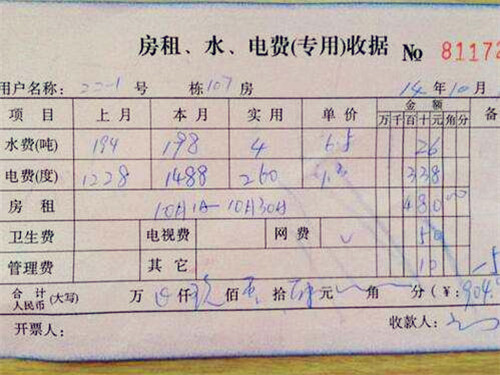 房租、水、电费(专用)收据 № 81172
用户名称: 22-1 号 栋107房 14年10月
项目 上月 本月 实用 单价 金额 备
万千百十元角分
水费(吨) 194 198 4 6.5 26
电费(度) 1228 1488 260 1.3 338
房租 10月1日-10月30日 480 00
卫生费 电视费 网费 50
管理费 其它 10
合计人民币(大写) 万 仟 玖佰 拾 元 角 分(¥: 904
开票人: 收款人: